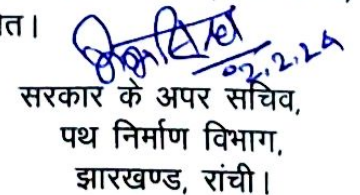 त।
02.2.24
सरकार के अपर सचिव,
पथ निर्माण विभाग,
झारखण्ड, रांची।